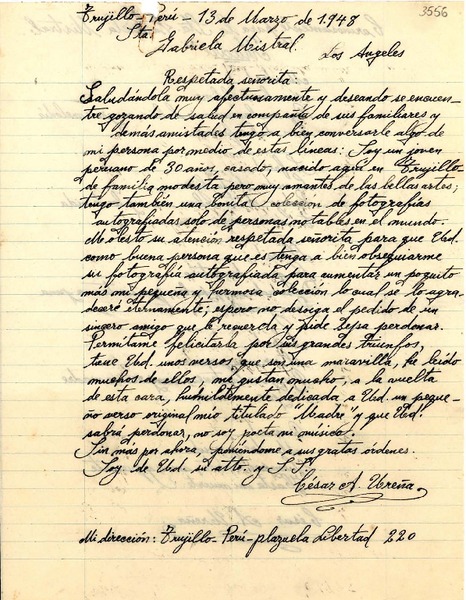 3556
Trujillo-Perú - 13 de Marzo de 1948
Sta.
Gabriela Mistral.
Los Angeles
Respetada señorita:
Saludándola muy afectuosamente y deseando se encuen-
tre gozando de salud en compañía de sus familiares y
demás amistades tengo a bien conversarle algo de
mi persona por medio de estas líneas: Soy un joven
peruano de 30 años, casado, nacido aquí en Trujillo-
de familia modesta pero muy amantes de las bellas artes;
tengo también una bonita colección de fotografías
autografiadas solo de personas notables en el mundo.
Molesto su atención respetada señorita para que Ud.
como buena persona que es tenga a bién obsequiarme
su fotografía autografiada para aumentar un poquito
más mi pequeña y hermosa colección lo cual se lo agra-
deceré eternamente; espero no desoiga el pedido de un
sincero amigo que le recuerda y pide sepa perdonar.
Permítame felicitarla por sus grandes triunfos,
tiene Ud. unos versos que son una maravilla, he leído
muchos de ellos, me gustan mucho, a la vuelta
de esta cara, humildemente dedicada a Ud. un peque-
ño verso original mío titulado "Madre" y que Ud.
sabrá perdonar, no soy poeta ni músico.
Sin más por ahora, poniéndome a sus gratas órdenes.
Soy de Ud. su atto. y S.S.
César A. Ureña.
Mi dirección: Trujillo-Perú-plazuela Libertad 220